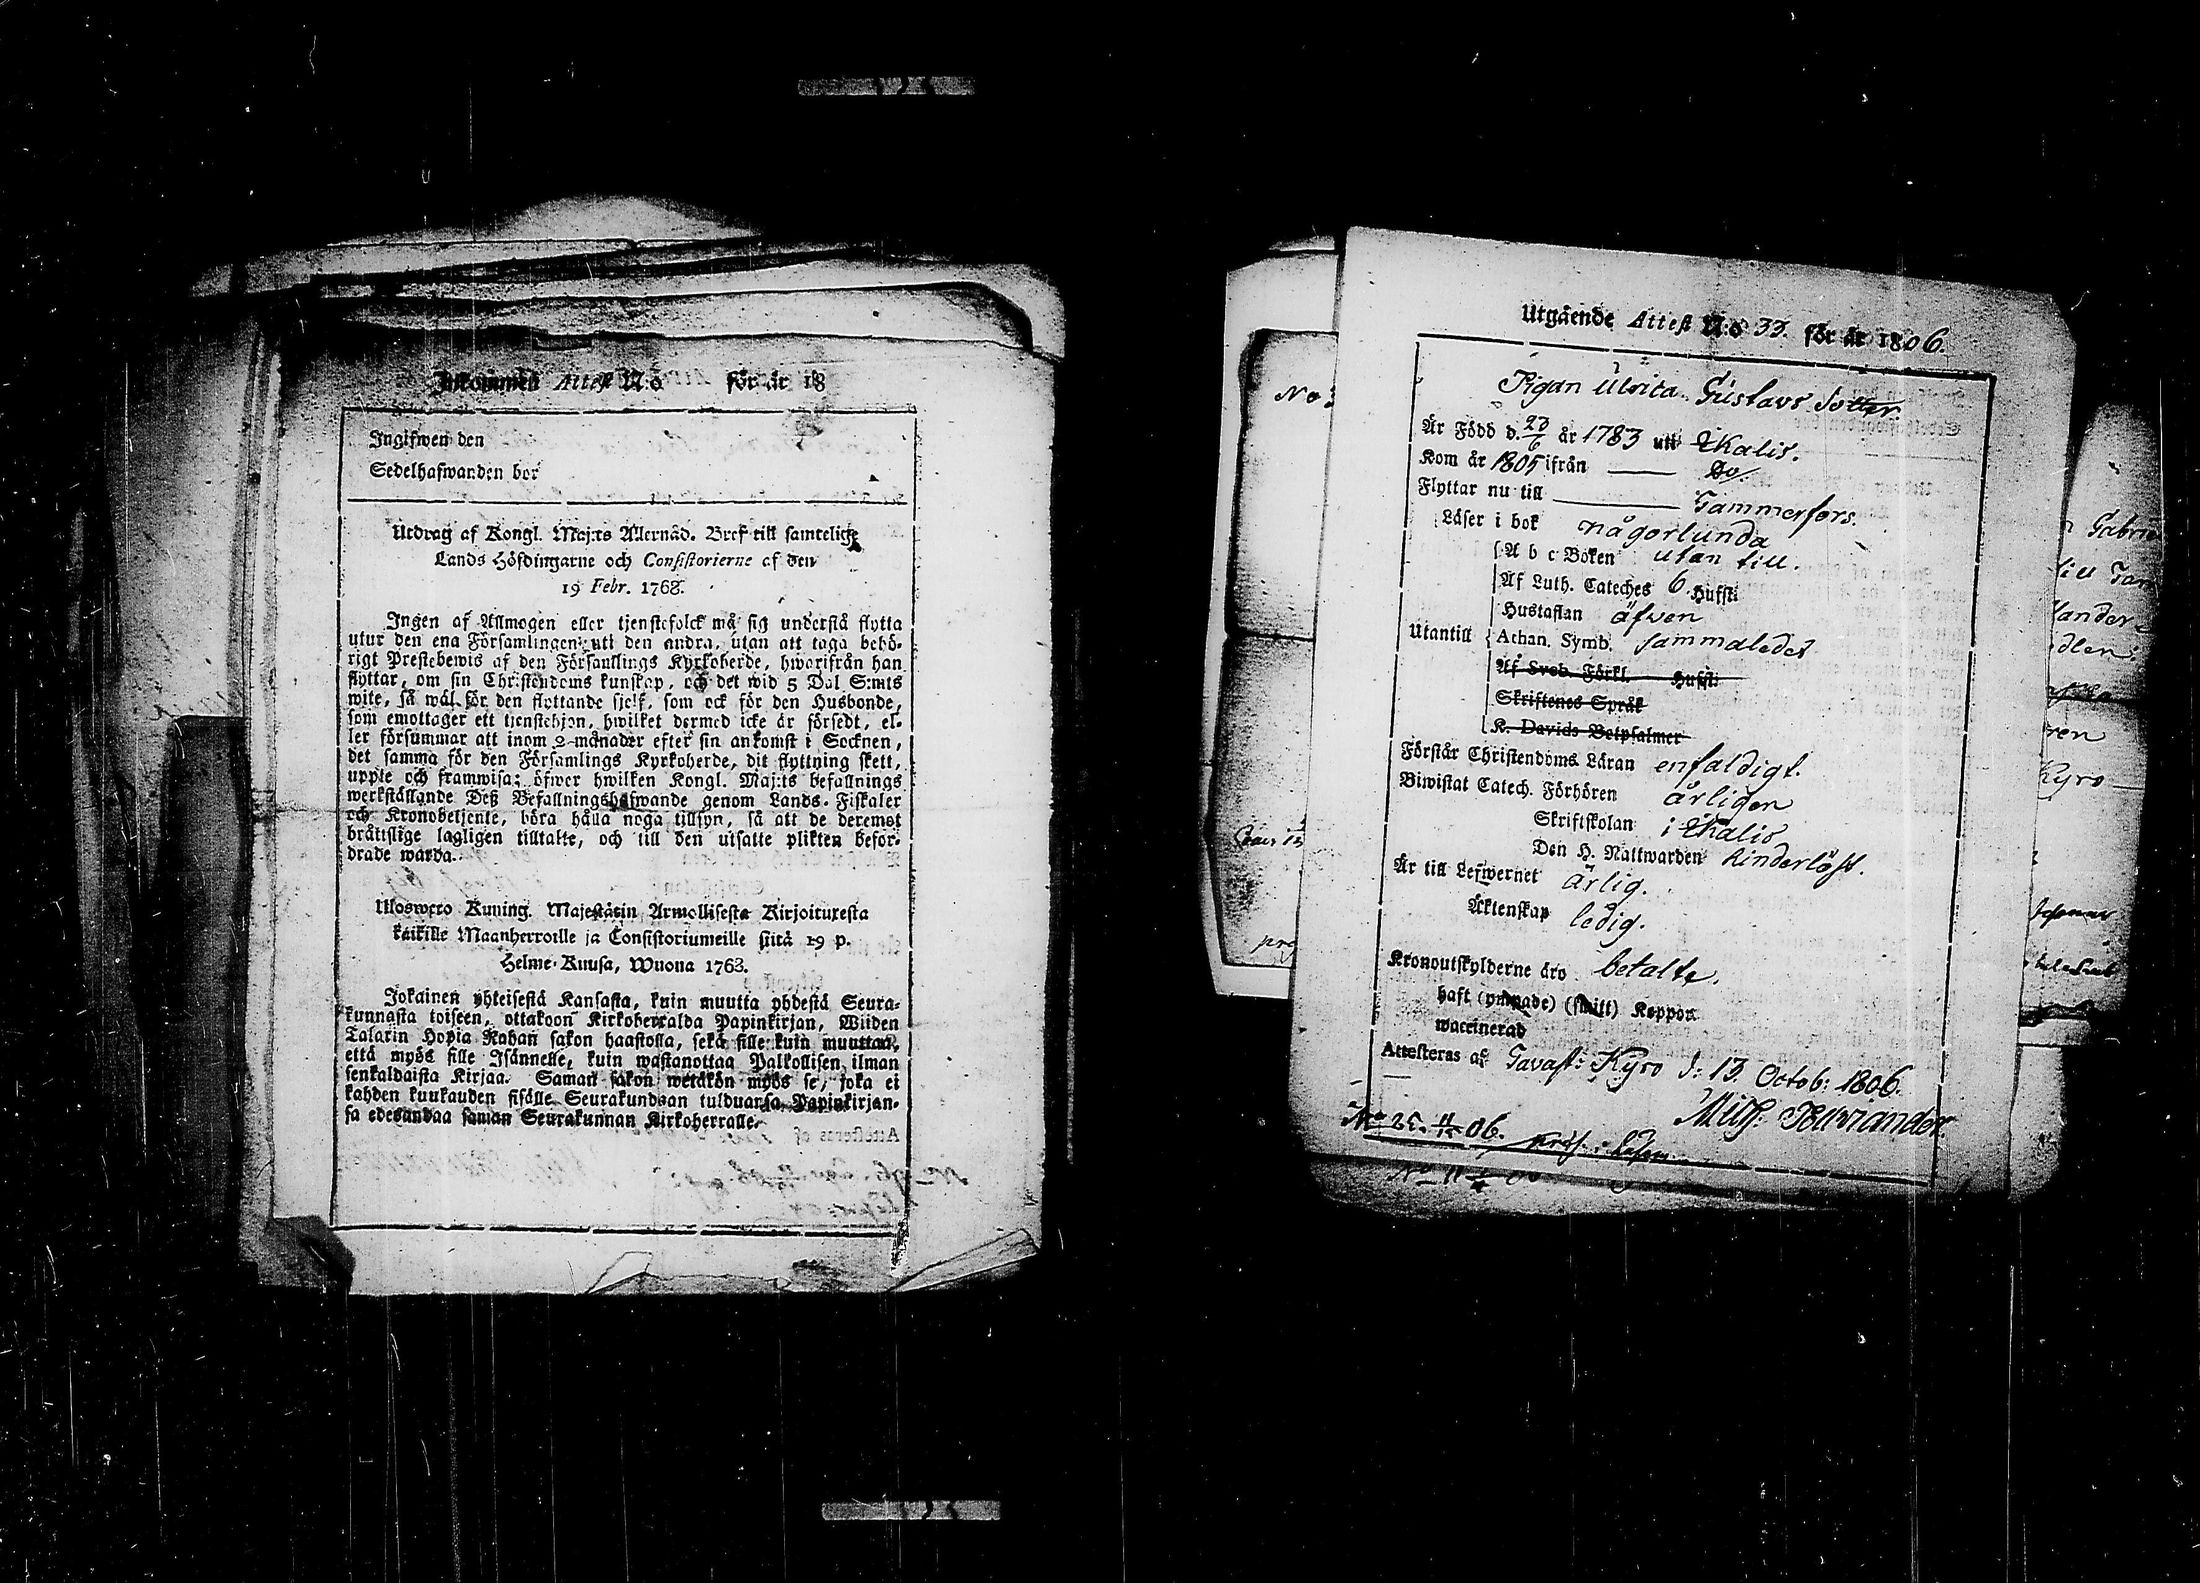 Inkommen Attest N:o för år 18
Ingifwen den
Sedelhafwanden bor
Utdrag af Kongl. Maj:ts Allernåd. Bref till samtelige
Lands Höfdingarne och Consistorierne af den
19 Febr. 1768.
Ingen af Allmogen eller tjenstefolck må sig understå flytta
utur den ena Församlingen uti den andra, utan att taga behö-
rigt Prestebewis af den Församlings Kyrkoherde, hworifrån han
flyttar, om sin Christendoms kunskap, och det wid 5 Dal S:mts
wite, så wäl för den flyttande sjelf, som ock för den Husbonde,
som emottager ett tjenstehjon, hwilket dermed icke är försedt, el-
ler försummar att inom 2 månader efter sin ankomst i Socknen,
det samma för den Församlings Kyrkoherde, dit flyttning skett,
uppte och framwisa; öfwer hwilken Kongl. Maj:ts befallnings
werkställande Deß Befallningshafwande genom Lands-Fiskaler
och Kronobetjente, böra hålla noga tillsyn, så att de deremot
bråttslige lagligen tilltalte, och till den utsatte plikten befor-
drade warda.
Uloswero Kuning. Majestätin Armollisesta Kirjoituxesta
kaikille Maanherroille ja Consistoriumeille siitä 19 p.
Helme-Kuusa, Wuona 1763.
Jokainen yhteisestä Kansasta, kuin muutta yhdestä Seura-
kunnasta toiseen, ottakoon Kirkoherralda Papinkirjan, Wiiden
Talarin Hopia Rahan sakon haastolla, sekä sille kuin muuttaa,
että myös sille Isännelle, kuin wastanottaa Palkollisen ilman
senkaldaista Kirjaa. Saman sakon wetäkön myös se, joka ei
kahden kuukauden sisälle Seurakundaan tulduansa Papinkirjan-
sa edesandaa saman Seurakunnan Kirkoherralle.
Utgående Attest N:o 33. för år 1806.
Pigan Ulrica Gustavs dotter.
Är Född d. 23/6 år 1783 uti Ikalis.
Kom år 1805 ifrån —— Do.
Flyttar nu till —— Tammerfors.
Läser i bok någorlunda
A b c Boken utan till.
Af Luth. Cateches 6 Hufst:
Hustaflan äfwen
Utantill Athan. Symb. sammaledes
Af Sveb. Förkl. Hufst:
Skriftenes Språk
K. Davids Botpsalmer
Förstår Christendoms Läran enfaldigt.
Biwistat Catech. Förhören årligen
Skriftskolan i Ikalis
Den H. Nattwarden hinderlöst.
Är till Lefwernet ärlig.
Äktenskap ledig.
Kronoutskylderne äro betalte.
haft (ympade) (smitt) Koppor
waccinerad
Attesteras af Tavast: Kyro d: 13 Octob: 1806.